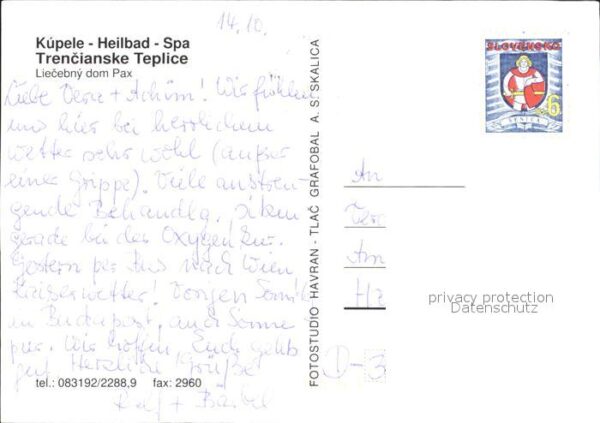 14.10.
Kúpele - Heilbad - Spa
Trenčianske Teplice
Liečebný dom Pax
Liebe Vera + Achim! Wir fühlen
uns hier bei herrlichem
Wetter sehr wohl (außer
einer Grippe). Viele anstren-
gende Behandlg. sitzen
gerade bei der Oxygen Kur.
Gestern per Bus nach Wien
Kaiserwetter! Vorigen
in Budapest, auch Sonne
pur. Wir hoffen, Euch gehts
gut. Herzliche Grüße
+ Bärbel
tel.: 083192/2288,9 fax: 2960
FOTOSTUDIO HAVRAN - TLAČ GRAFOBAL A. S. SKALICA
SLOVENSKO
6
SENICA
An
Am
D-3
privacy protection
Datenschutz